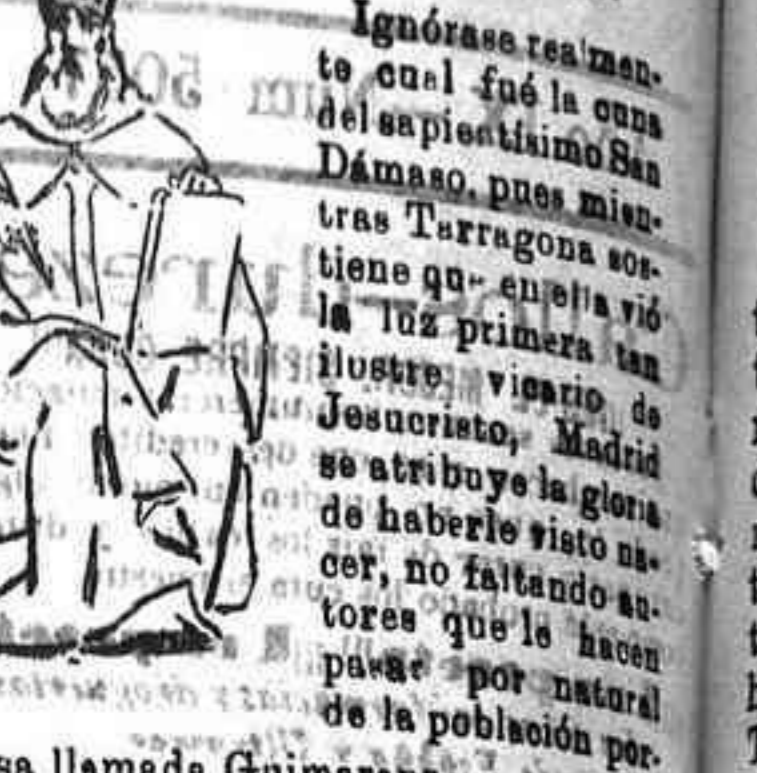 Ignórase realmen-
te cual fué la cuna
del sapientísimo San
Dámaso, pues mien-
tras Tarragona sos-
tiene que en ella vió
la luz primera tan
ilustre vicario de
Jesucristo, Madrid
se atribuye la gloria
de haberle visto na-
cer, no faltando au-
tores que le hacen
pasar por natural
de la población por-
sa llamada Guimarans